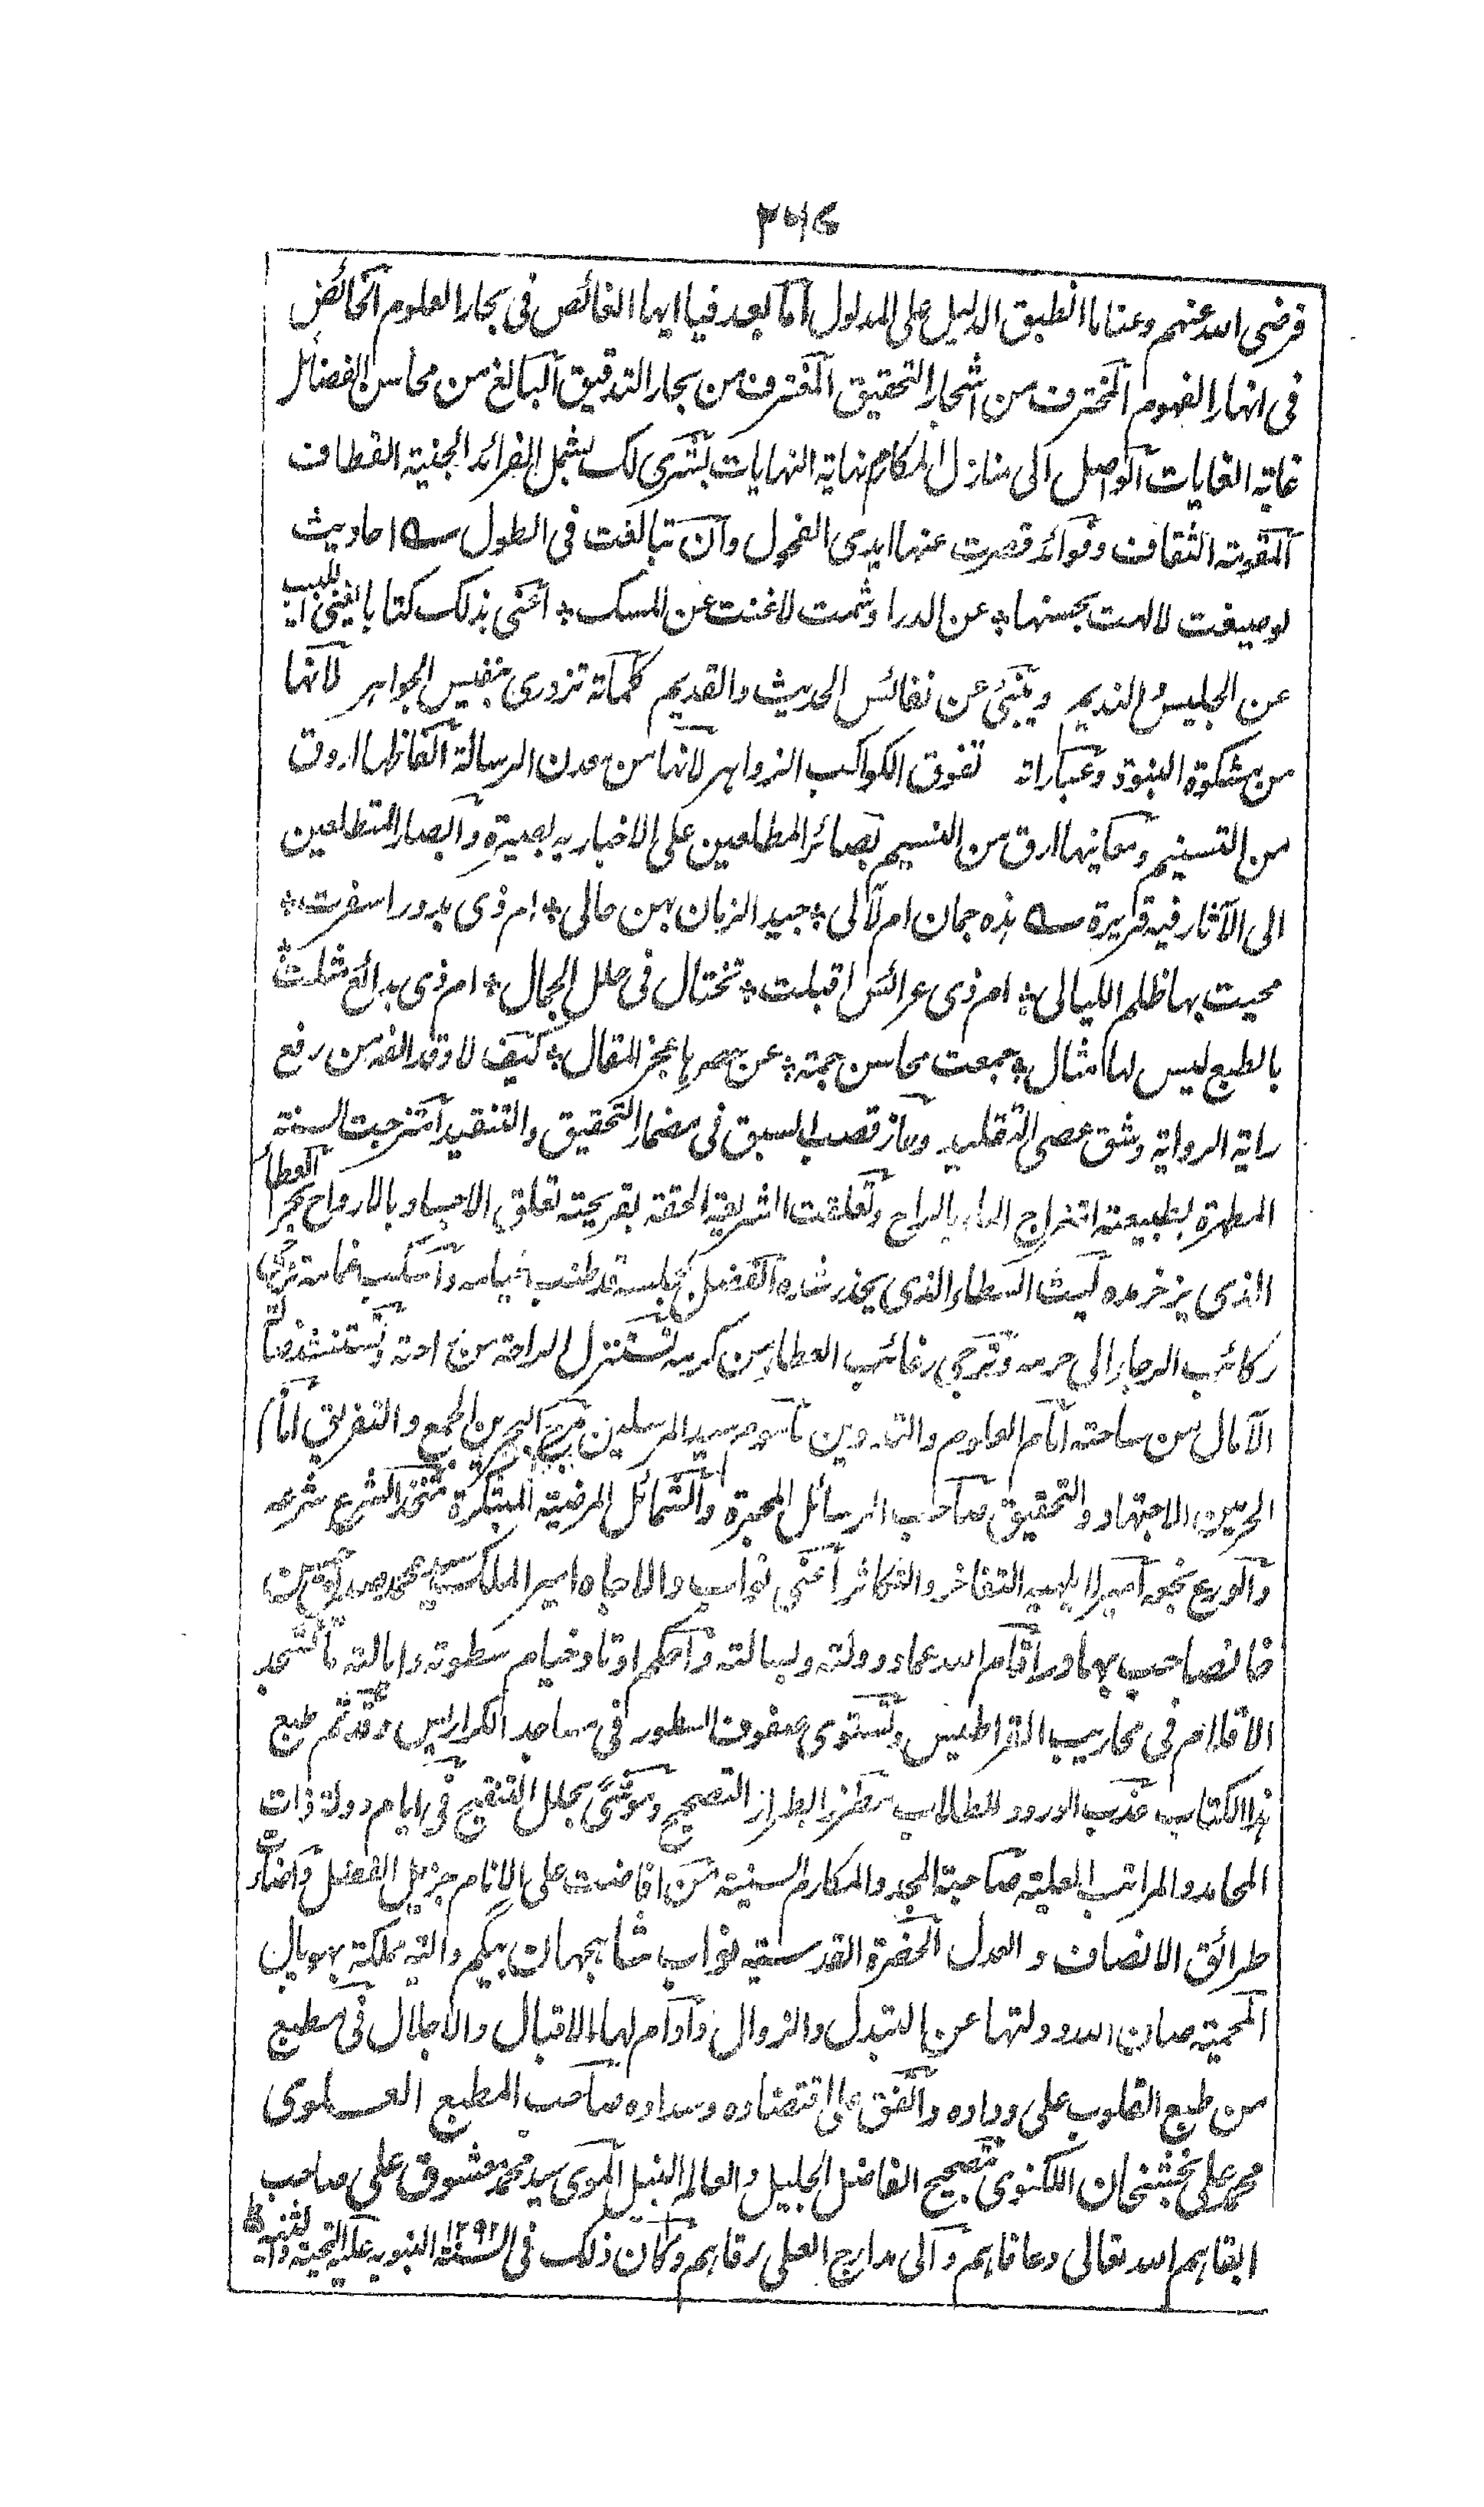 فرضى الله عنهم وعنا ما انطبق الدليل على المدلول اما بعد فيا ايها الغائص فى بحار العلوم الخائض
فى انهار الفهوم المخترف من اشجار التحقيق المغترف من بحار التدقيق البالغ من محاسن الفضائل
غاية الغايات الواصل الى منازل المكارم نهاية النهايات بشرى لك بشمل الفرائد الجنية القطاف
المقومة الثقاف وفوائد قصرت عنها ايدى الفحول وان تبالغت فى الطول ؎ احاديث
لو صيغت لالهت بحسنها * عن الدر او شمت لاغنت عن المسك * اعنى بذلك كتابا يغنى اللبيب
عن الجليس والنديم وينبئ عن نفائس الحديث والقديم كلماته تزورى بنفيس الجواهر لانها
من مشكوة النبوة وعباراته تفوق الكواكب الزواهر لانها من معدن الرسالة الفاظها اروق
من التسنيم ومعانيها ارق من النسيم بصائر المطلعين على الاخبار به بصيرة وابصار المتطلعين
الى الآثار فيه قريرة ؎ هذه جمان ام لآلى * جيد الزمان بهن حالى * ام ذى بدور اسفرت *
محيت بها ظلم الليالى * ام ذى عرائس اقبلت * تختال فى حلل الجمال * ام ذى بدائع شكلت
بالطبع ليس لها مثال * جمعت محاسن جمة * عن حصرها عجز المقال * كيف لا وقد الفه من رفع
راية الرواية وشق عصى التقليد وحاز قصب السبق فى مضمار التحقيق والتنقيد امتزجت السنة
المطهرة بطبيعته امتزاج الماء بالراح وتعلقت الشريعة الحقة بقريحته تعلق الاجساد بالارواح بحر العطاء
الذى يزخر مده ليث السطاء الذى يحذر شده الفضل بمجلسه قد طنب خيامه واسكب غمامه تزجى
ركائب الرجاء الى حرمه وترجى رغائب العطاء من كرمه تستنزل الراحة من راحته وتستنشد ضالة
الآمال من ساحته امام العلوم والتدوين مأسوم سيد المرسلين مرج البحرين الجمع والتفريق امام
الحرمين الاجتهاد والتحقيق صاحب الرسائل المحبرة والشمائل المرضية المبتكرة متخذ الشرع شرعه
والورع نجعه اميرا لا يلهيه التفاخر والتكاثر اعنى نواب والاجاه امير الملك سيد محمد صديق حسن
خانصاحب بهادر اقام الله عماد دولته وبسالته واحكم اوتاد خيام سطوته وايالته ما تسجد
الاقلام فى محاريب القراطيس وتستوى صفوف السطور فى مساجد الكراريس وقد تم طبع
هذا الكتاب عذب الورود للطلاب مطرزا بطراز التصحيح وموشى بحلل التنقيح فى ايام دولة ذات
المحامد والمراتب العلية صاحبة المجد والمكارم السنية من افاضت على الانام جزيل الفضل واضاءت
طرائق الانصاف والعدل الحضرة القدسية نواب شاهجهان بيگم والية مملكة بهوپال
المحمية صان الله دولتها عن التبدل والزوال وادام لها الاقبال والاجلال فى مطبع
من طبع القلوب على وداده واتفق على اقتصاده وسداده صاحب المطبع العلوى
محمد على بخشخان اللكنوى بتصحيح الفاضل الجليل والعالم النبيل المولوى سيد محمد معشوق على صاحب
ابقاهم الله تعالى وعافاهم والى مدارج العلى رقاهم وكان ذلك فى السنة ١٢٩٢ النبوية عليه التحية والثنية